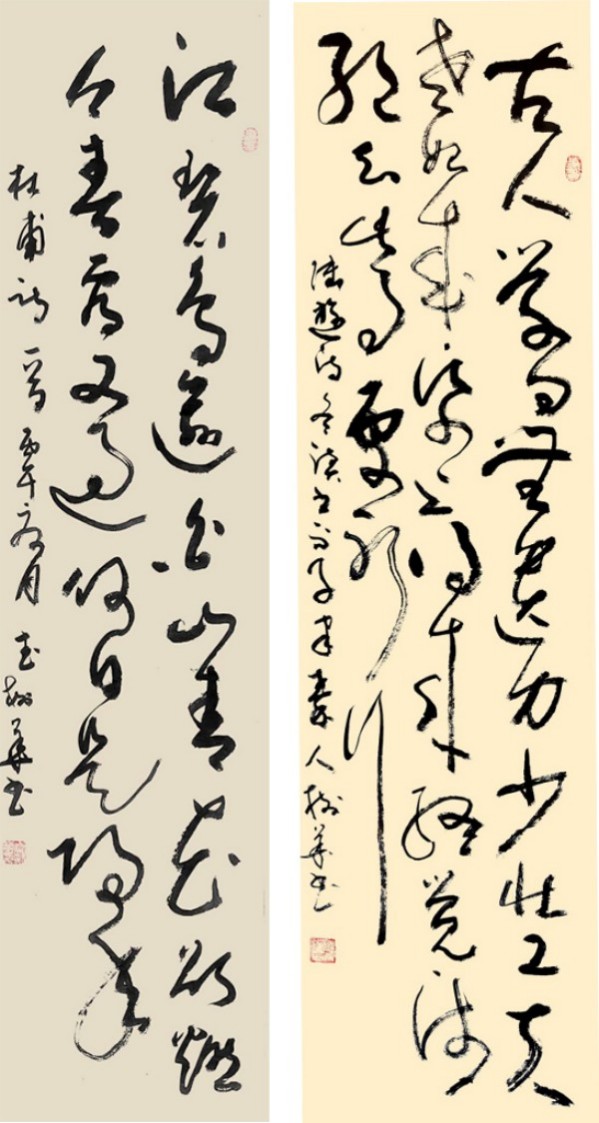 古人学问无遗力少壮工夫
老始成纸上得来终觉浅
绝知此事要躬行
陆游诗冬读书示子聿秦人树华书
江碧鸟逾白山青花欲燃
今春看又过何日是归年
杜甫诗一首丙午月树华书